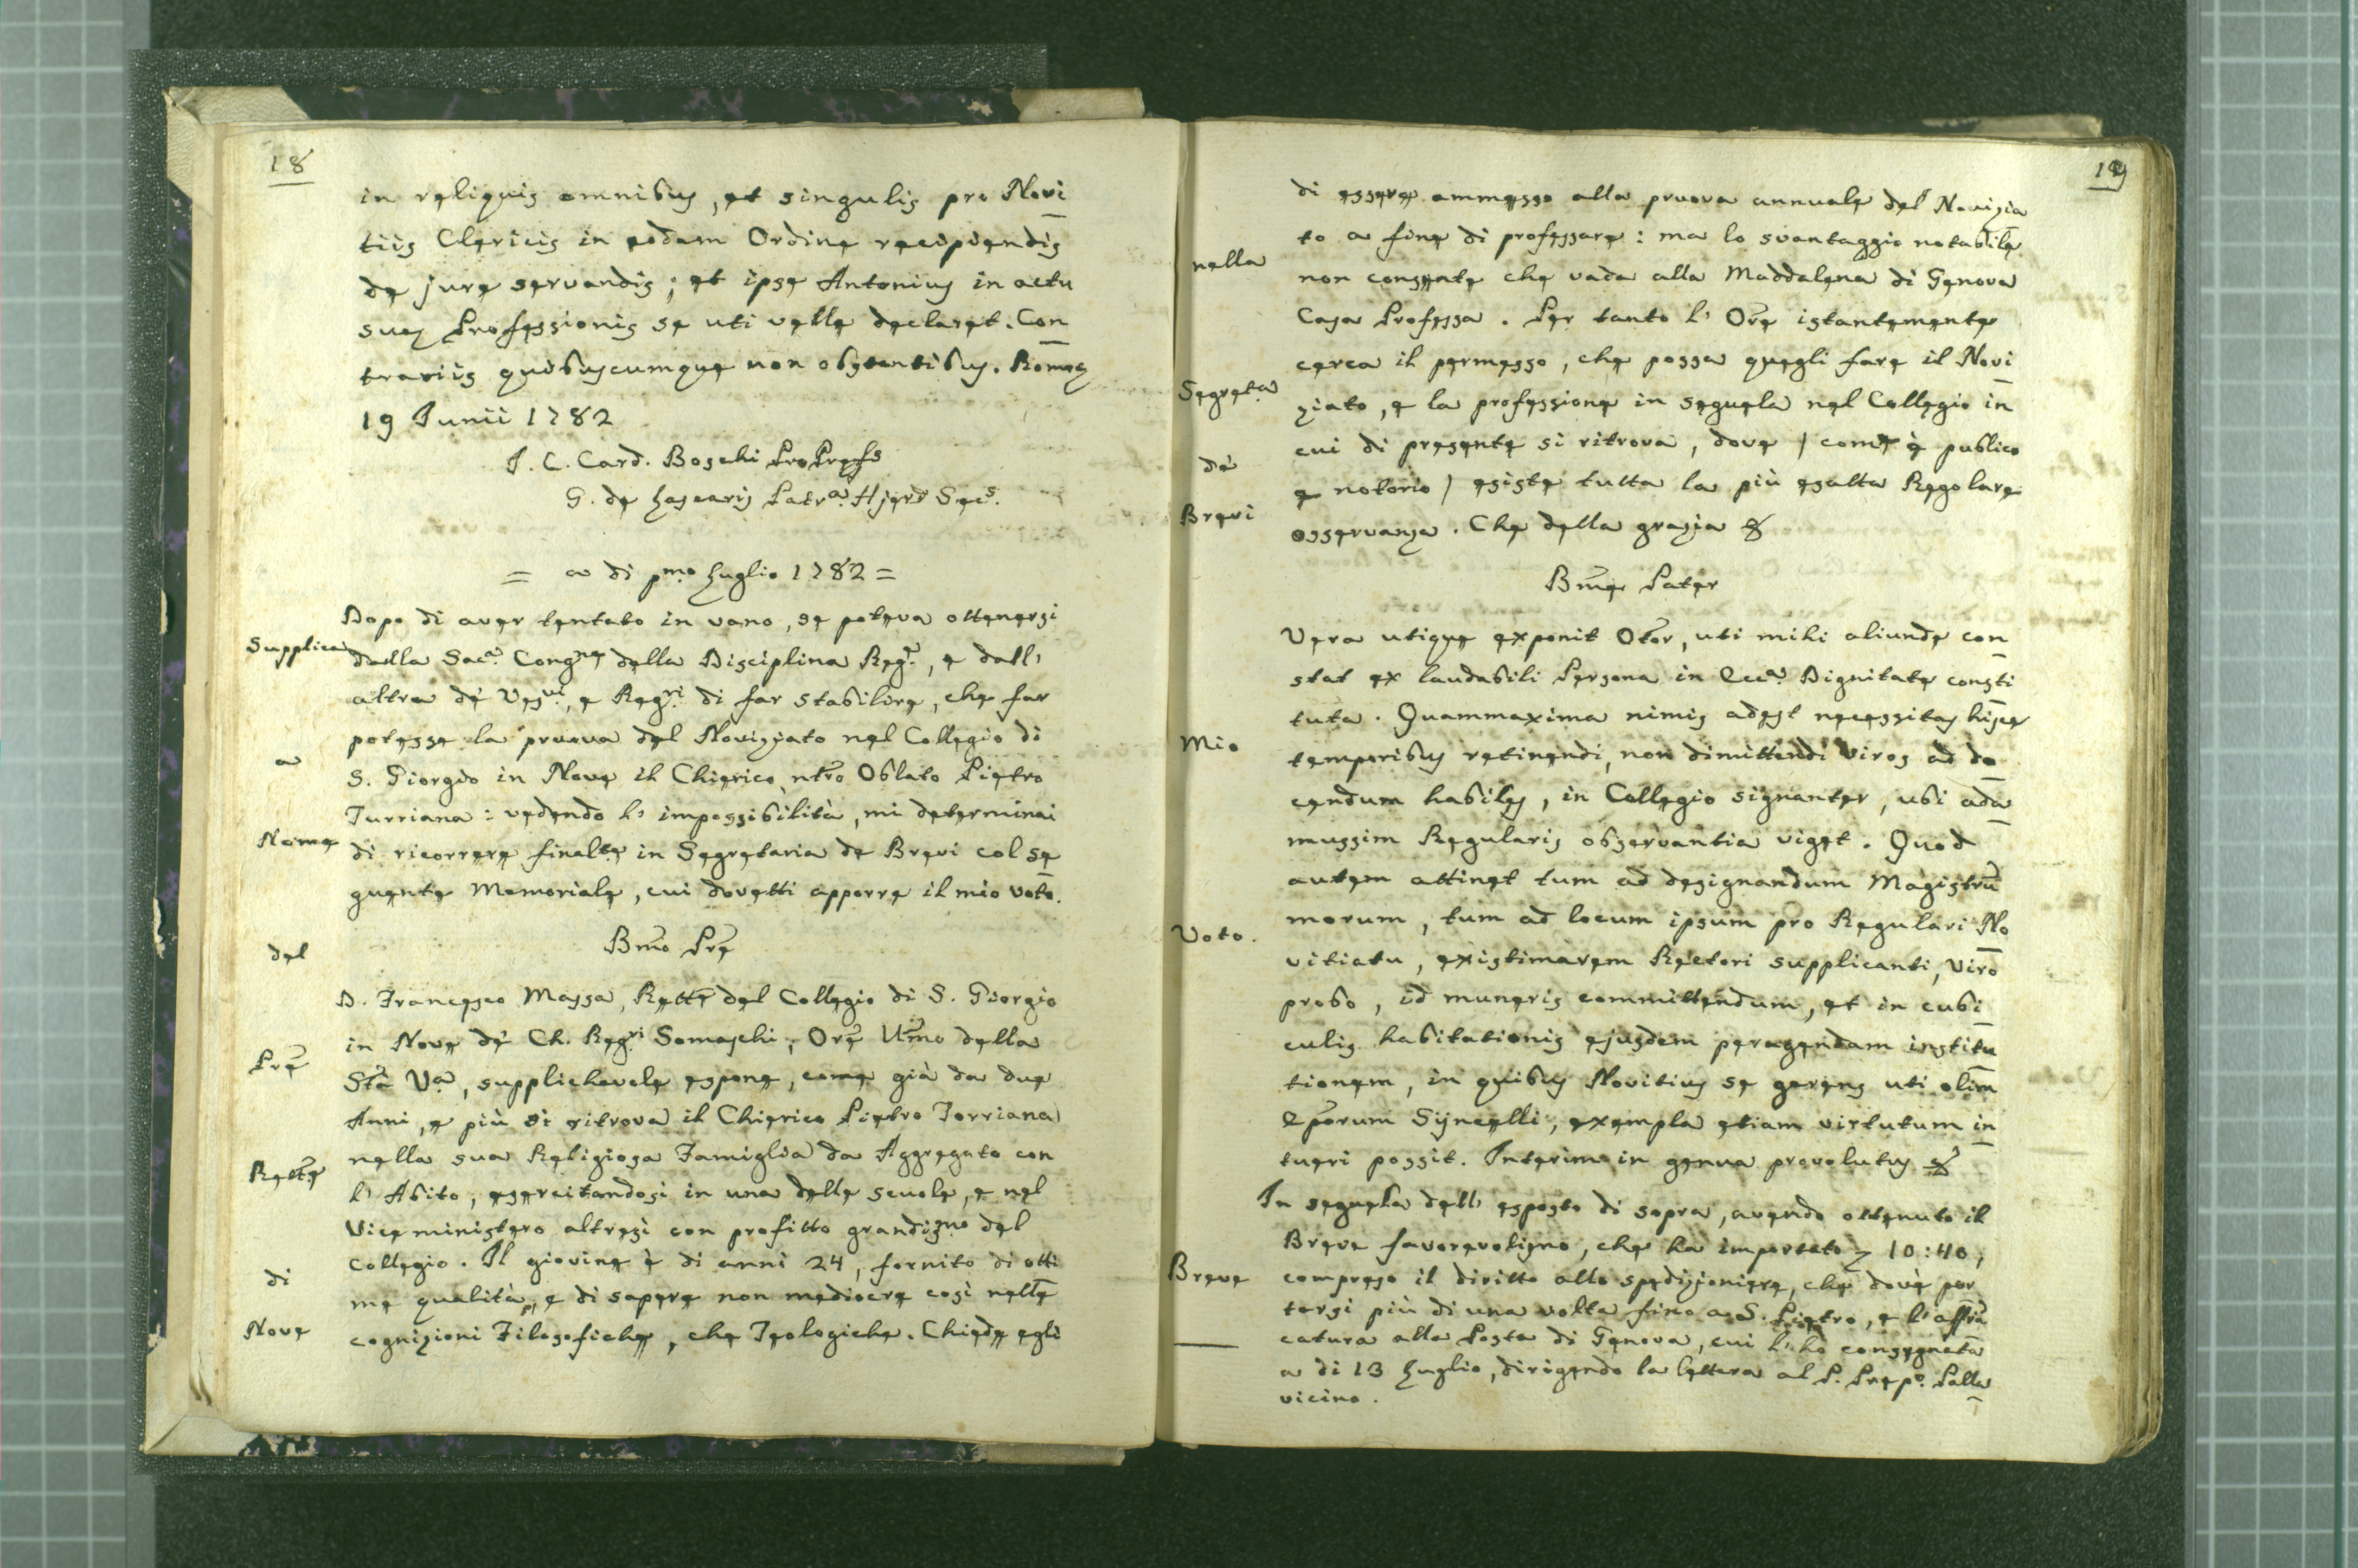 18
in reliquis omnibus, et singulis pro Novi
tiis Clericis in eodem Ordine recipiendis
de jure servandis; et ipse Antonius in actu
suae Professionis se uti velle declaret. Con
trariis quibuscumque non obstantibus. Romae
19 Junii 1782
J. C. Card. Boschi ProPraefs
G. de Patra Secs.
= a di pmo Luglio 1782 =
Supplica
a
Nome
del
Prē
Rettē
di
Nove
Dopo di aver tentato in vano, se poteva ottenersi
dalla Saca. Congne della Disciplina Rege., e dall'
altra de' Vesvi, e Regri. di far stabilire, che far
potesse la pruova del Noviziato nel Collegio di
S. Giorgio in Nove il Chierico ntro Oblato Pietro
Turriana: vedendo l' impossibilità, mi determinai
di ricorrere finalte in Segretaria de Brevi col se
guente Memoriale, cui dovetti apporre il mio voto.
Bmo Prē
D. Francesco Massa, Rettē del Collegio di S. Giorgio
in Nove de' Ch. Regri Somaschi, Orē Umo della
Stà Va, supplichevole espone, come già da due
Anni, e più si ritrova il Chierico Pietro Torriana
nella sua Religiosa Famiglia da Aggregato con
l' Abito, esercitandosi in una delle scuole, e nel
Viceministero altresì con profitto grandismo del
Collegio. Il giovine è di anni 24, fornito di otti
me qualità, e di sapere non mediocre così nelle
cognizioni Filosofiche, che Teologiche. Chiede egli
19
nella
Segreta
de'
Brevi
Mio
Voto.
Breve
di essere ammesso alla pruova annuale del Novizia
to a fine di professare: ma lo svantaggio notabile
non consente che vada alla Maddalena di Genova
Casa Professa. Per tanto l' Orē istantemente
cerca il permesso, che possa quegli fare il Novi
ziato, e la professione in seguela nel Collegio in
cui di presente si ritrova, dove / come è publico
e notorio / esiste tutta la più esatta Regolare
osservanza. Che della grazia &
Bme Pater
Vera utique exponit Otor, uti mihi aliunde con
stat ex laudabili Persona in Ecca. Dignitate consti
tuta. Quammaxima nimis adest necessitas hisce
temporibus retinendi, non dimittendi viros ad do
cendum habiles, in Collegio signanter, ubi ada
mussim Regularis observantia viget. Quod
autem attinet tum ad designandum Magistrū
morum, tum ad locum ipsum pro Regulari No
vitiatu, existimarem Rectori supplicanti, viro
probo, id muneris committendum, et in cubi
culis habitationis ejusdem peragendam institu
tionem, in quibus Novitius se gerens uti olim
Eporum Syncelli, exempla etiam virtutum in
tueri possit. Interim in genua provolutus &
In seguela dell' esposto di sopra, avendo ottenuto il
Breve favorevolismo, che ha importato 10:40,
compreso il diritto allo spedizioniere, che dovè por
tarsi più di una volta fino a S. Pietro, e l' affrā
catura alla Posta di Genova, cui l' ho consegnata
a di 13 Luglio, dirigendo la lettera al P. Prepo. Palla
vicino.